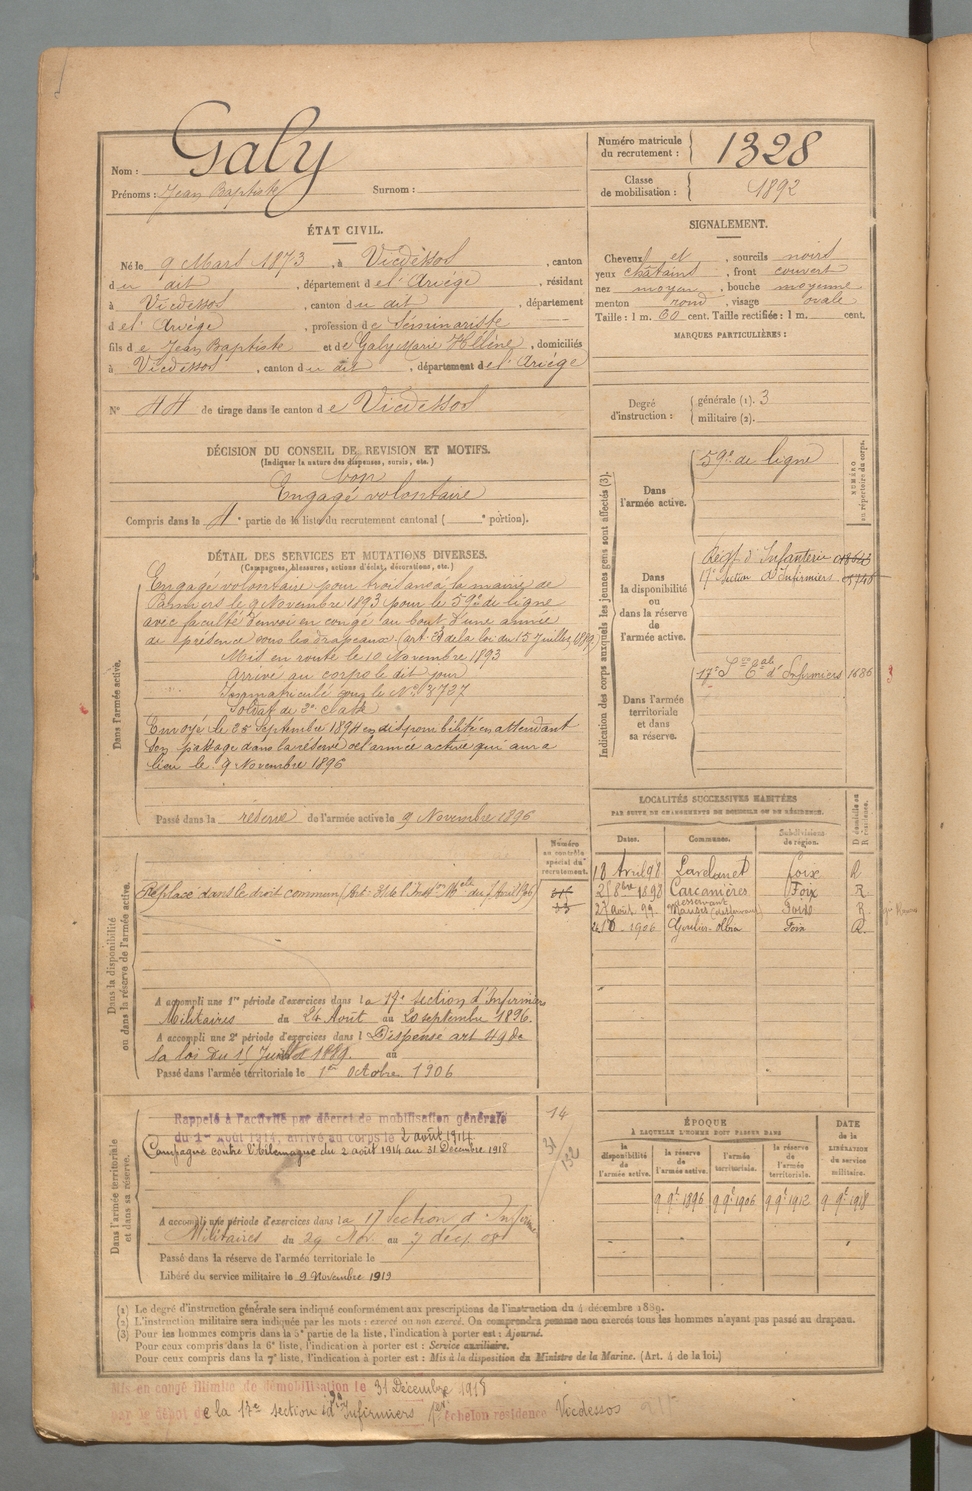 Nom : Galy
Prénoms : Jean Baptiste Surnom :
Numéro matricule du recrutement : 1328
Classe de mobilisation : 1892
ÉTAT CIVIL.
Né le 9 Mars 1873, à Vicdessos, canton
du dit, département de l'Ariége, résidant
à Vicdessos, canton du dit, département
de l'Ariége, profession de Séminariste
fils de Jean Baptiste et de Galy Marie Hélène, domiciliés
à Vicdessos, canton du dit, département de l'Ariége
N° 44 de tirage dans le canton de Vicdessos
SIGNALEMENT.
Cheveux et, sourcils noirs
yeux chatains, front couvert
nez moyen, bouche moyenne
menton rond, visage ovale
Taille : 1 m. 60 cent. Taille rectifiée : 1 m. cent.
MARQUES PARTICULIÈRES :
Degré d'instruction : générale (1). 3
militaire (2).
DÉCISION DU CONSEIL DE REVISION ET MOTIFS.
(Indiquer la nature des dispenses, sursis, etc.)
bon
Engagé volontaire
Compris dans la 4e partie de la liste du recrutement cantonal ( e portion).
DÉTAIL DES SERVICES ET MUTATIONS DIVERSES.
(Campagnes, blessures, actions d'éclat, décorations, etc.)
Dans l'armée active.
Engagé volontaire pour trois ans à la mairie de
Pamiers le 9 Novembre 1893 pour le 59e de ligne
avec faculté d'envoi en congé au bout d'une année
de présence sous les drapeaux. (art. de la loi du 15 Juillet 1889)
Mis en route le 10 Novembre 1893
Arrivé au corps le dit jour
Immatriculé sous le N°
Soldat de 2e classe
Envoyé le 25 Septembre 1894 en disponibilité en attendant
son passage dans la réserve de l'armée active qui aura
lieu le 9 Novembre 1896
Passé dans la réserve de l'armée active le 9 Novembre 1896
Indication des corps auxquels les jeunes gens sont affectés (3).
NUMÉRO au répertoire du corps.
Dans l'armée active.
59e de ligne
Dans la disponibilité ou dans la réserve de l'armée active.
Régt. d'Infanterie
17e Section d'Infirmiers
Dans l'armée territoriale et dans sa réserve.
17e Son Eale d'Infirmiers 1686
LOCALITÉS SUCCESSIVES HABITÉES
PAR SUITE DE CHANGEMENTS DE DOMICILE OU DE RÉSIDENCE.
Dates. Communes. Subdivisions de région. D domicile ou R résidence.
18 Avril 98 Lavelanet Foix R
8bre 1898 Carcanières Foix R.
Août 99 (desservant) Foix R.
1906 Goulier-Olbier Foix R.
Dans la disponibilité ou dans la réserve de l'armée active.
Numéro au contrôle spécial du recrutement.
Replacé dans le droit commun
A accompli une 1re période d'exercices dans la 17e section d'Infirmiers
Militaires du 24 Août au 20 septembre 1896.
A accompli une 2e période d'exercices dans l Dispensé art 49 de
la loi du 15 Juillet 1889. au
Passé dans l'armée territoriale le 1er Octobre 1906
Dans l'armée territoriale et dans sa réserve.
Rappelé à l'activité par décret de mobilisation générale
du 1er Août 1914, arrivé au corps le 2 août 1914
Campagne contre l'Allemagne du 2 août 1914 au 31 Décembre 1918
14
31/132
A accompli une période d'exercices dans la 17 Section d'Infirmiers
Militaires du 29 Nov au 7 déc. 08
Passé dans la réserve de l'armée territoriale le
Libéré du service militaire le 9 Novembre 1919
ÉPOQUE
A LAQUELLE L'HOMME DOIT PASSER DANS
la disponibilité de l'armée active. la réserve de l'armée active. l'armée territoriale. la réserve de l'armée territoriale. DATE de la LIBÉRATION du service militaire.
9 9e 1896 9 9e 1906 9 9e 1912 9 9e 1918
(1) Le degré d'instruction générale sera indiqué conformément aux prescriptions de l'instruction du 4 décembre 1889.
(2) L'instruction militaire sera indiquée par les mots : exercé ou non exercé. On comprendra comme non exercés tous les hommes n'ayant pas passé au drapeau.
(3) Pour les hommes compris dans la 5e partie de la liste, l'indication à porter est : Ajourné.
Pour ceux compris dans la 6e liste, l'indication à porter est : Service auxiliaire.
Pour ceux compris dans la 7e liste, l'indication à porter est : Mis à la disposition du Ministre de la Marine. (Art. 4 de la loi.)
Mis en congé illimité de démobilisation le 31 Décembre 1918
par le dépôt de la 17e section d'Infirmiers échelon résidence Vicdessos